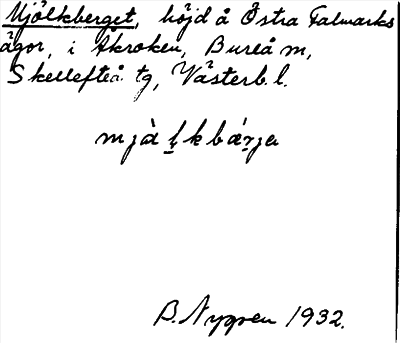 Mjölkberget, höjd å Östra Falmarks
ägor, i Åkroken, Bureå m,
Skellefteå tg, Västerb. l.
mjà l̥kbárja
B. Nygren 1932.